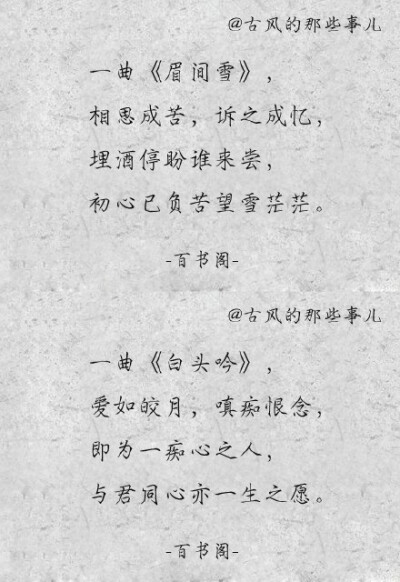 @古风的那些事儿
一曲《眉间雪》，
相思成苦，诉之成忆，
埋酒停盼谁来尝，
初心已负苦望雪茫茫。
-百书阁-
@古风的那些事儿
一曲《白头吟》，
爱如皎月，嗔痴恨念，
即为一痴心之人，
与君同心亦一生之愿。
-百书阁-